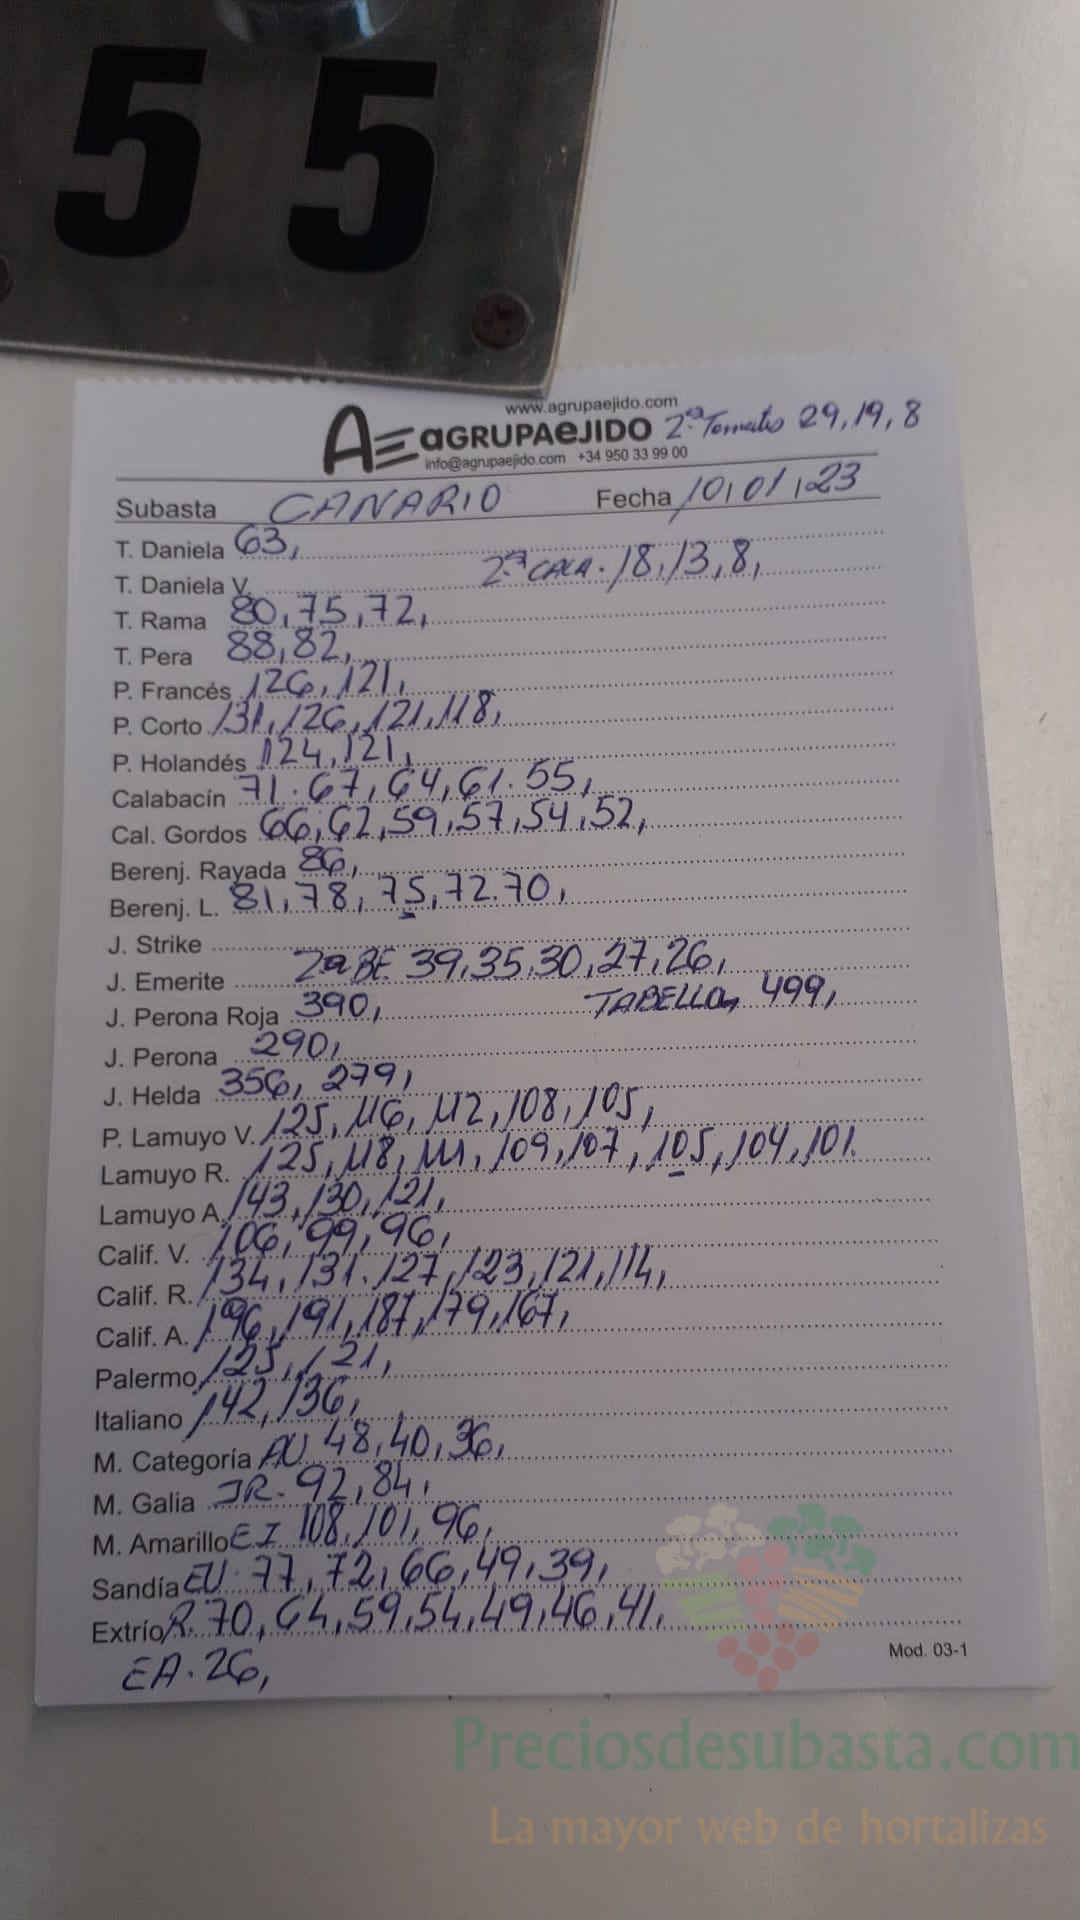 55
www.agrupaejido.com
AGRUPAEJIDO 2ª Tomates 29, 19, 8
info@agrupaejido.com +34 950 33 99 00
Subasta CANARIO Fecha 10, 01, 23
T. Daniela 63,
T. Daniela V. 2ª CALA. 18, 13, 8,
T. Rama 80, 75, 72,
T. Pera 88, 82,
P. Francés 126, 121,
P. Corto 131, 126, 121, 118,
P. Holandés 124, 121,
Calabacín 71. 67, 64, 61. 55,
Cal. Gordos 66, 62, 59, 57, 54, 52,
Berenj. Rayada 86,
Berenj. L. 81, 78, 75, 72. 70,
J. Strike
J. Emerite 2a BE 39, 35, 30, 27, 26,
J. Perona Roja 390, TABELLA, 499,
J. Perona 290,
J. Helda 356, 279,
P. Lamuyo V. 125, 116, 112, 108, 105,
Lamuyo R. 125, 118, 111, 109, 107, 105, 104, 101.
Lamuyo A. 143, 130, 121,
Calif. V. 106, 99, 96,
Calif. R. 134, 131. 127, 123, 121, 114,
Calif. A. 196, 191, 187, 179, 167,
Palermo 125, 121,
Italiano 142, 136,
M. Categoría AU 48, 40, 36,
M. Galia JR. 92, 84,
M. Amarillo EI 108, 101, 96,
Sandía EU. 77, 72, 66, 49, 39,
Extrío R. 70, 64, 59, 54, 49, 46, 41,
EA. 26,
Mod. 03-1
Preciosdesubasta.com
La mayor web de hortalizas